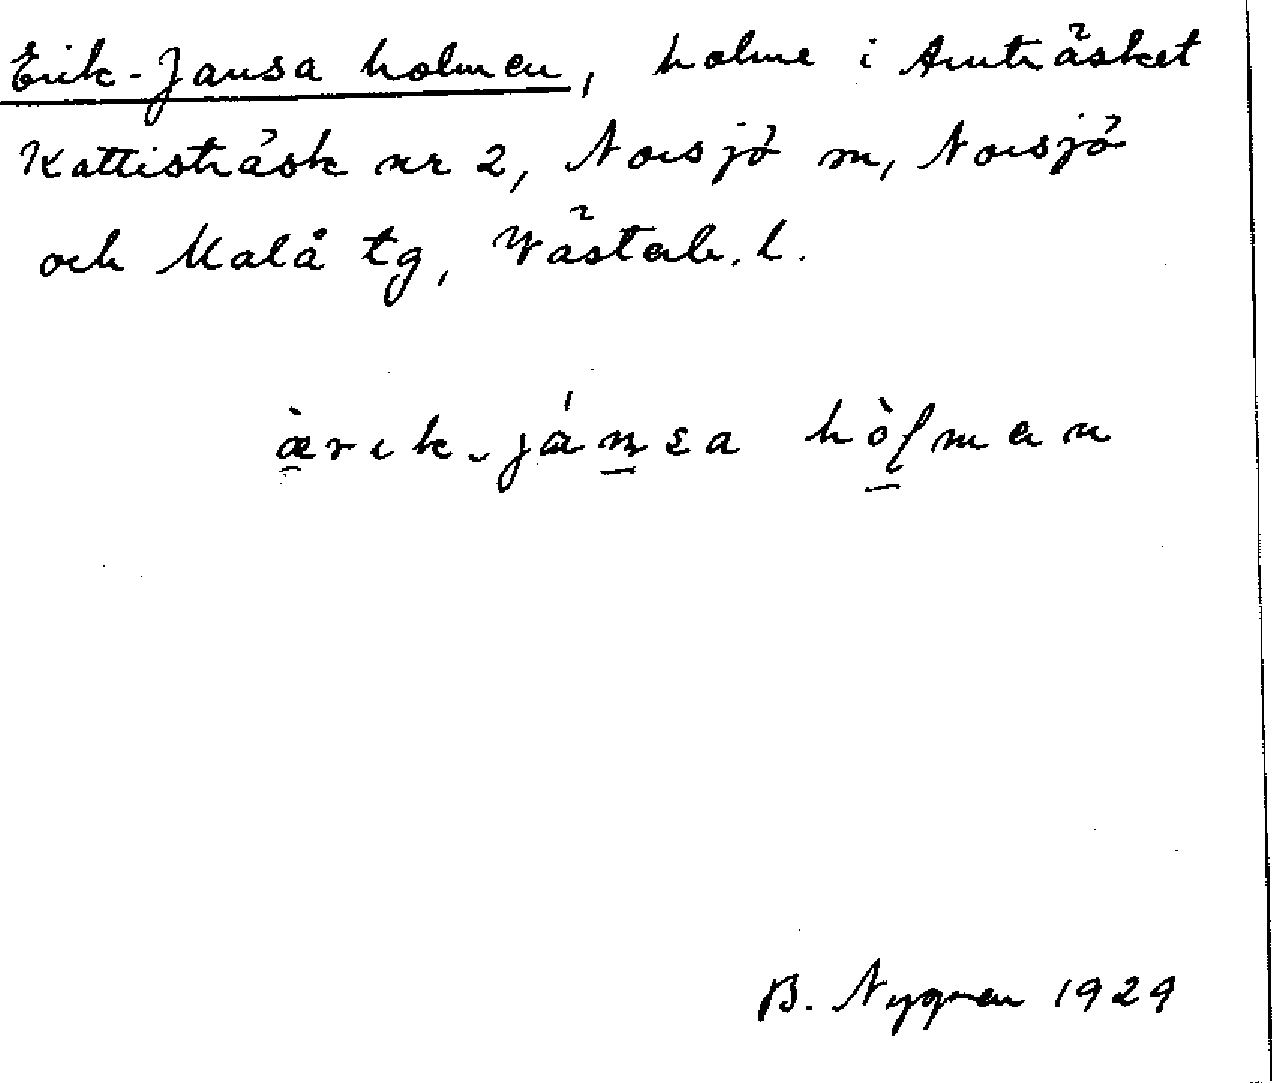 Erik-Jansa holmen, holme i Amträsket
Kattisträsk nr 2, Norsjö sn, Norsjö
och Malå tg, Västerb. l.
ærik-jánsa hòlmen
B. Nygren 1929